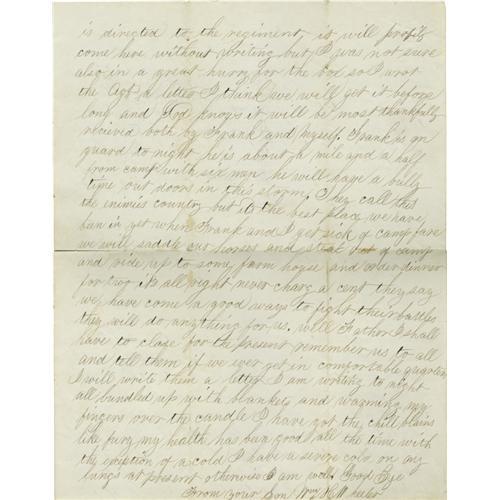 is directed to the regiment it will profity
come here without writing but I was not sure
also in a great hurry for the box so I wrot
the Agt a letter I think we will get it before
long and God knows it will be most thankfully
recived both by Frank and myself. Frank is on
guard to night he is about a mile and a half
from camp with six men he will have a bully
time out doors in this storm. They call this
the enimies country but its the best place we have
ban in yet when Frank and I get sick of camp fare
we will saddle our horses and steal out of camp
and ride up to some farm house and order dinner
for two its all right never charg a cent they say
we have come a good ways to fight their battles
they will do anything for us. well Father I shall
have to close for the present remember us to all
and tell them if we ever get in comfortable quarters
I will write them a letter I am writing to night
all bundled up with blankets and warming my
fingers over the candle I have got the chill blains
like fury my health has ben good all the time with
the exception of a cold I have a severe cold on my
lungs at present otherwise I am well. Good Bye
From your Son Wm